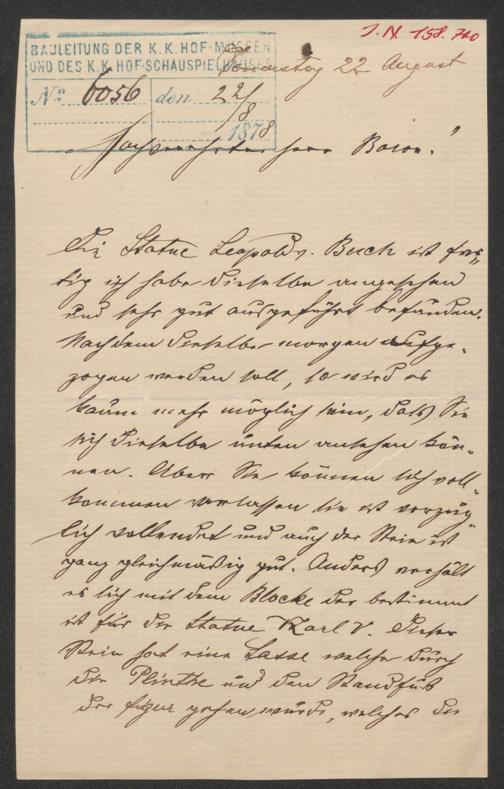 J.N. 158.740
BAULEITUNG DER K.K. HOF-MUSEEN
UND DES K.K. HOF-SCHAUSPIELHAUSES
Donnerstag 22 August
No 6056 den 22/8
1878
Hochverehrter Herr Baron!
Die Statue Leopold v. Buch ist fer„
tig ich habe dieselbe angesehen
und sehr gut ausgeführt befunden.
Nachdem dieselbe morgen aufge„
zogen werden soll, so wird es
kaum mehr möglich sein, daß Sie
sich dieselbe unten ansehen kön„
nen. Aber Sie können sich voll„
kommen verlassen sie ist vorzüg„
lich vollendet und auch der Stein ist
ganz gleichmäßig gut. Anders verhält
es sich mit dem Blocke der bestimmt
ist für die Statue Karl V. Dieser
Stein hat eine Lasse welche durch
die Plinthe und den Standfuß
der Figur gehen würde, welches die